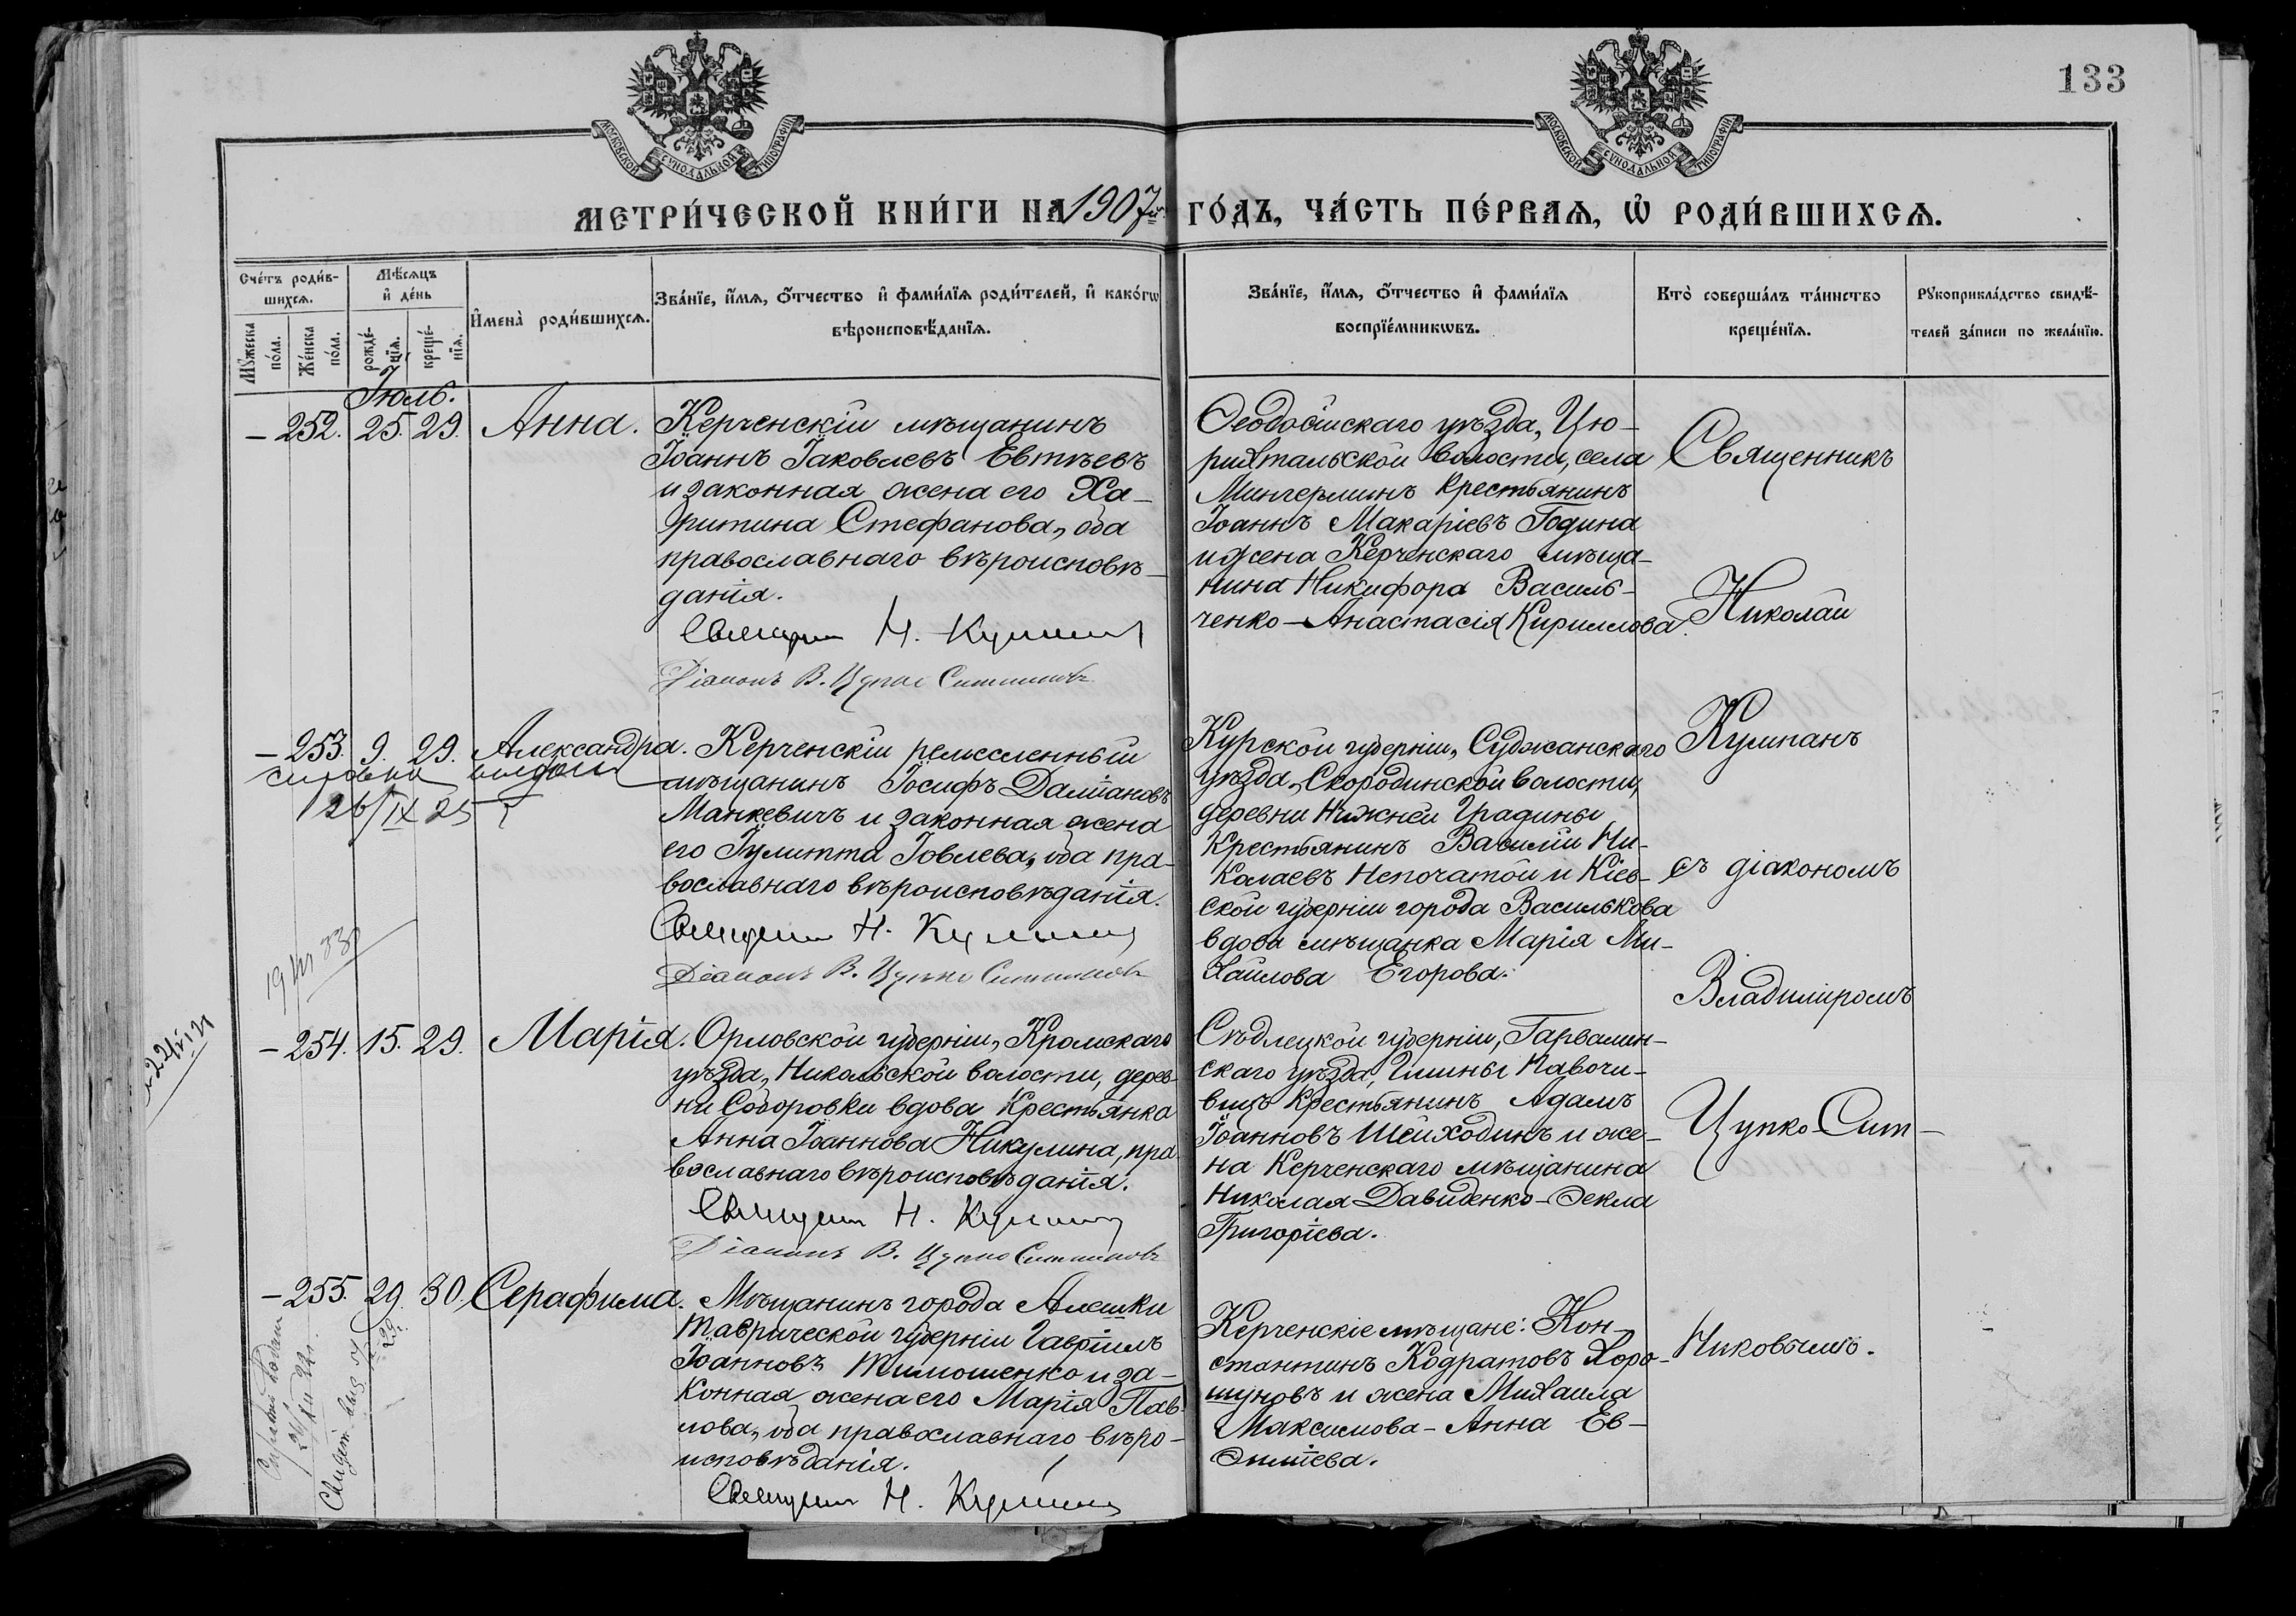 133
МОСКОВСКОЙ СѴНОДАЛЬНОЙ ТИПОГРАФІИ
МОСКОВСКОЙ СѴНОДАЛЬНОЙ ТИПОГРАФІИ
МЕТРИ́ЧЕСКОЙ КНИ́ГИ НА 1907й ГО́ДЪ, ЧА́СТЬ ПЕ́РВАѦ, Ѡ РОДИ́ВШИХСѦ.
Сче́тъ роди́в-
шихсѧ.
Мꙋжеска по́ла.
Же́нска по́ла.
Мѣ́сѧцъ и҆ де́нь
рожде́-
нїѧ.
креще́-
нїѧ.
И҆мена̀ роди́вшихсѧ.
Зва́нїе, и҆́мѧ, ѻ҆́тчество и҆ фами́лїѧ роди́телей, и҆ како́гѡ
вѣроисповѣ́данїѧ.
Зва́нїе, и҆́мѧ, ѻ҆́тчество и҆ фами́лїѧ
воспрїе́мникѡвъ.
Кто̀ соверша́лъ та́инство
креще́нїѧ.
Рꙋкоприкла́дство свидѣ́-
телей за́писи по жела́нїю.
Іюль.
– 252. 25. 29. Анна.
Керченскій мѣщанинъ
Іоаннъ Іаковлевъ Евтѣевъ
и законная жена его Ха-
ритина Стефанова, оба
православнаго вѣроисповѣ-
данія.
Священникъ Н. Кулпанъ
Діаконъ В. Цупко Ситниковъ
Ѳеодосійскаго уѣзда, Цю-
рихтальской волости, села
крестьянинъ
Іоаннъ Макаріевъ Година
и жена Керченскаго мѣща-
нина Никифора Василь-
ченко – Анастасія Кириллова.
– 253. 9. 29. Александра.
справка выдана
26/IX 25
Керченскій ремесленный
мѣщанинъ Іосифъ Даміановъ
Манкевичъ и законная жена
его Іулитта Іовлева, оба пра-
вославнаго вѣроисповѣданія.
Священникъ Н. Кулпанъ
Діаконъ В. Цупко Ситниковъ
Курской губерніи, Суджанскаго
уѣзда, Скородинской волости,
деревни Нижней Градины
крестьянинъ Василій Ни-
колаевъ Непочатой и Кіев-
ской губерніи города Василькова
вдова мѣщанка Марія Ми-
хайлова Егорова.
– 254. 15. 29. Марія.
Орловской губерніи, Кромскаго
уѣзда, Никольской волости, дерев-
ни Соборовки вдова крестьянка
Анна Іоаннова Никулина, пра-
вославнаго вѣроисповѣданія.
Священникъ Н. Кулпанъ
Діаконъ В. Цупко Ситниковъ
Сѣдлецкой губерніи, Гарволин-
скаго уѣзда, Гмины
крестьянинъ Адамъ
Іоанновъ Шейходинъ и же-
на Керченскаго мѣщанина
Николая Давиденко – Ѳекла
Григоріева.
– 255. 29. 30. Серафима.
Мѣщанинъ города Алешки
Таврической губерніи Гавріилъ
Іоанновъ Тимошенко и за-
конная жена его Марія Пав-
лова, оба православнаго вѣро-
исповѣданія.
Священникъ Н. Кулпанъ
Керченскіе мѣщане: Кон-
стантинъ Кодратовъ Хоро-
шуновъ и жена Михаила
Максимова – Анна Ев-
ѳиміева.
Священникъ
Николай
Кулпанъ
съ діакономъ
Владиміромъ
Цупко-Сит-
никовымъ.